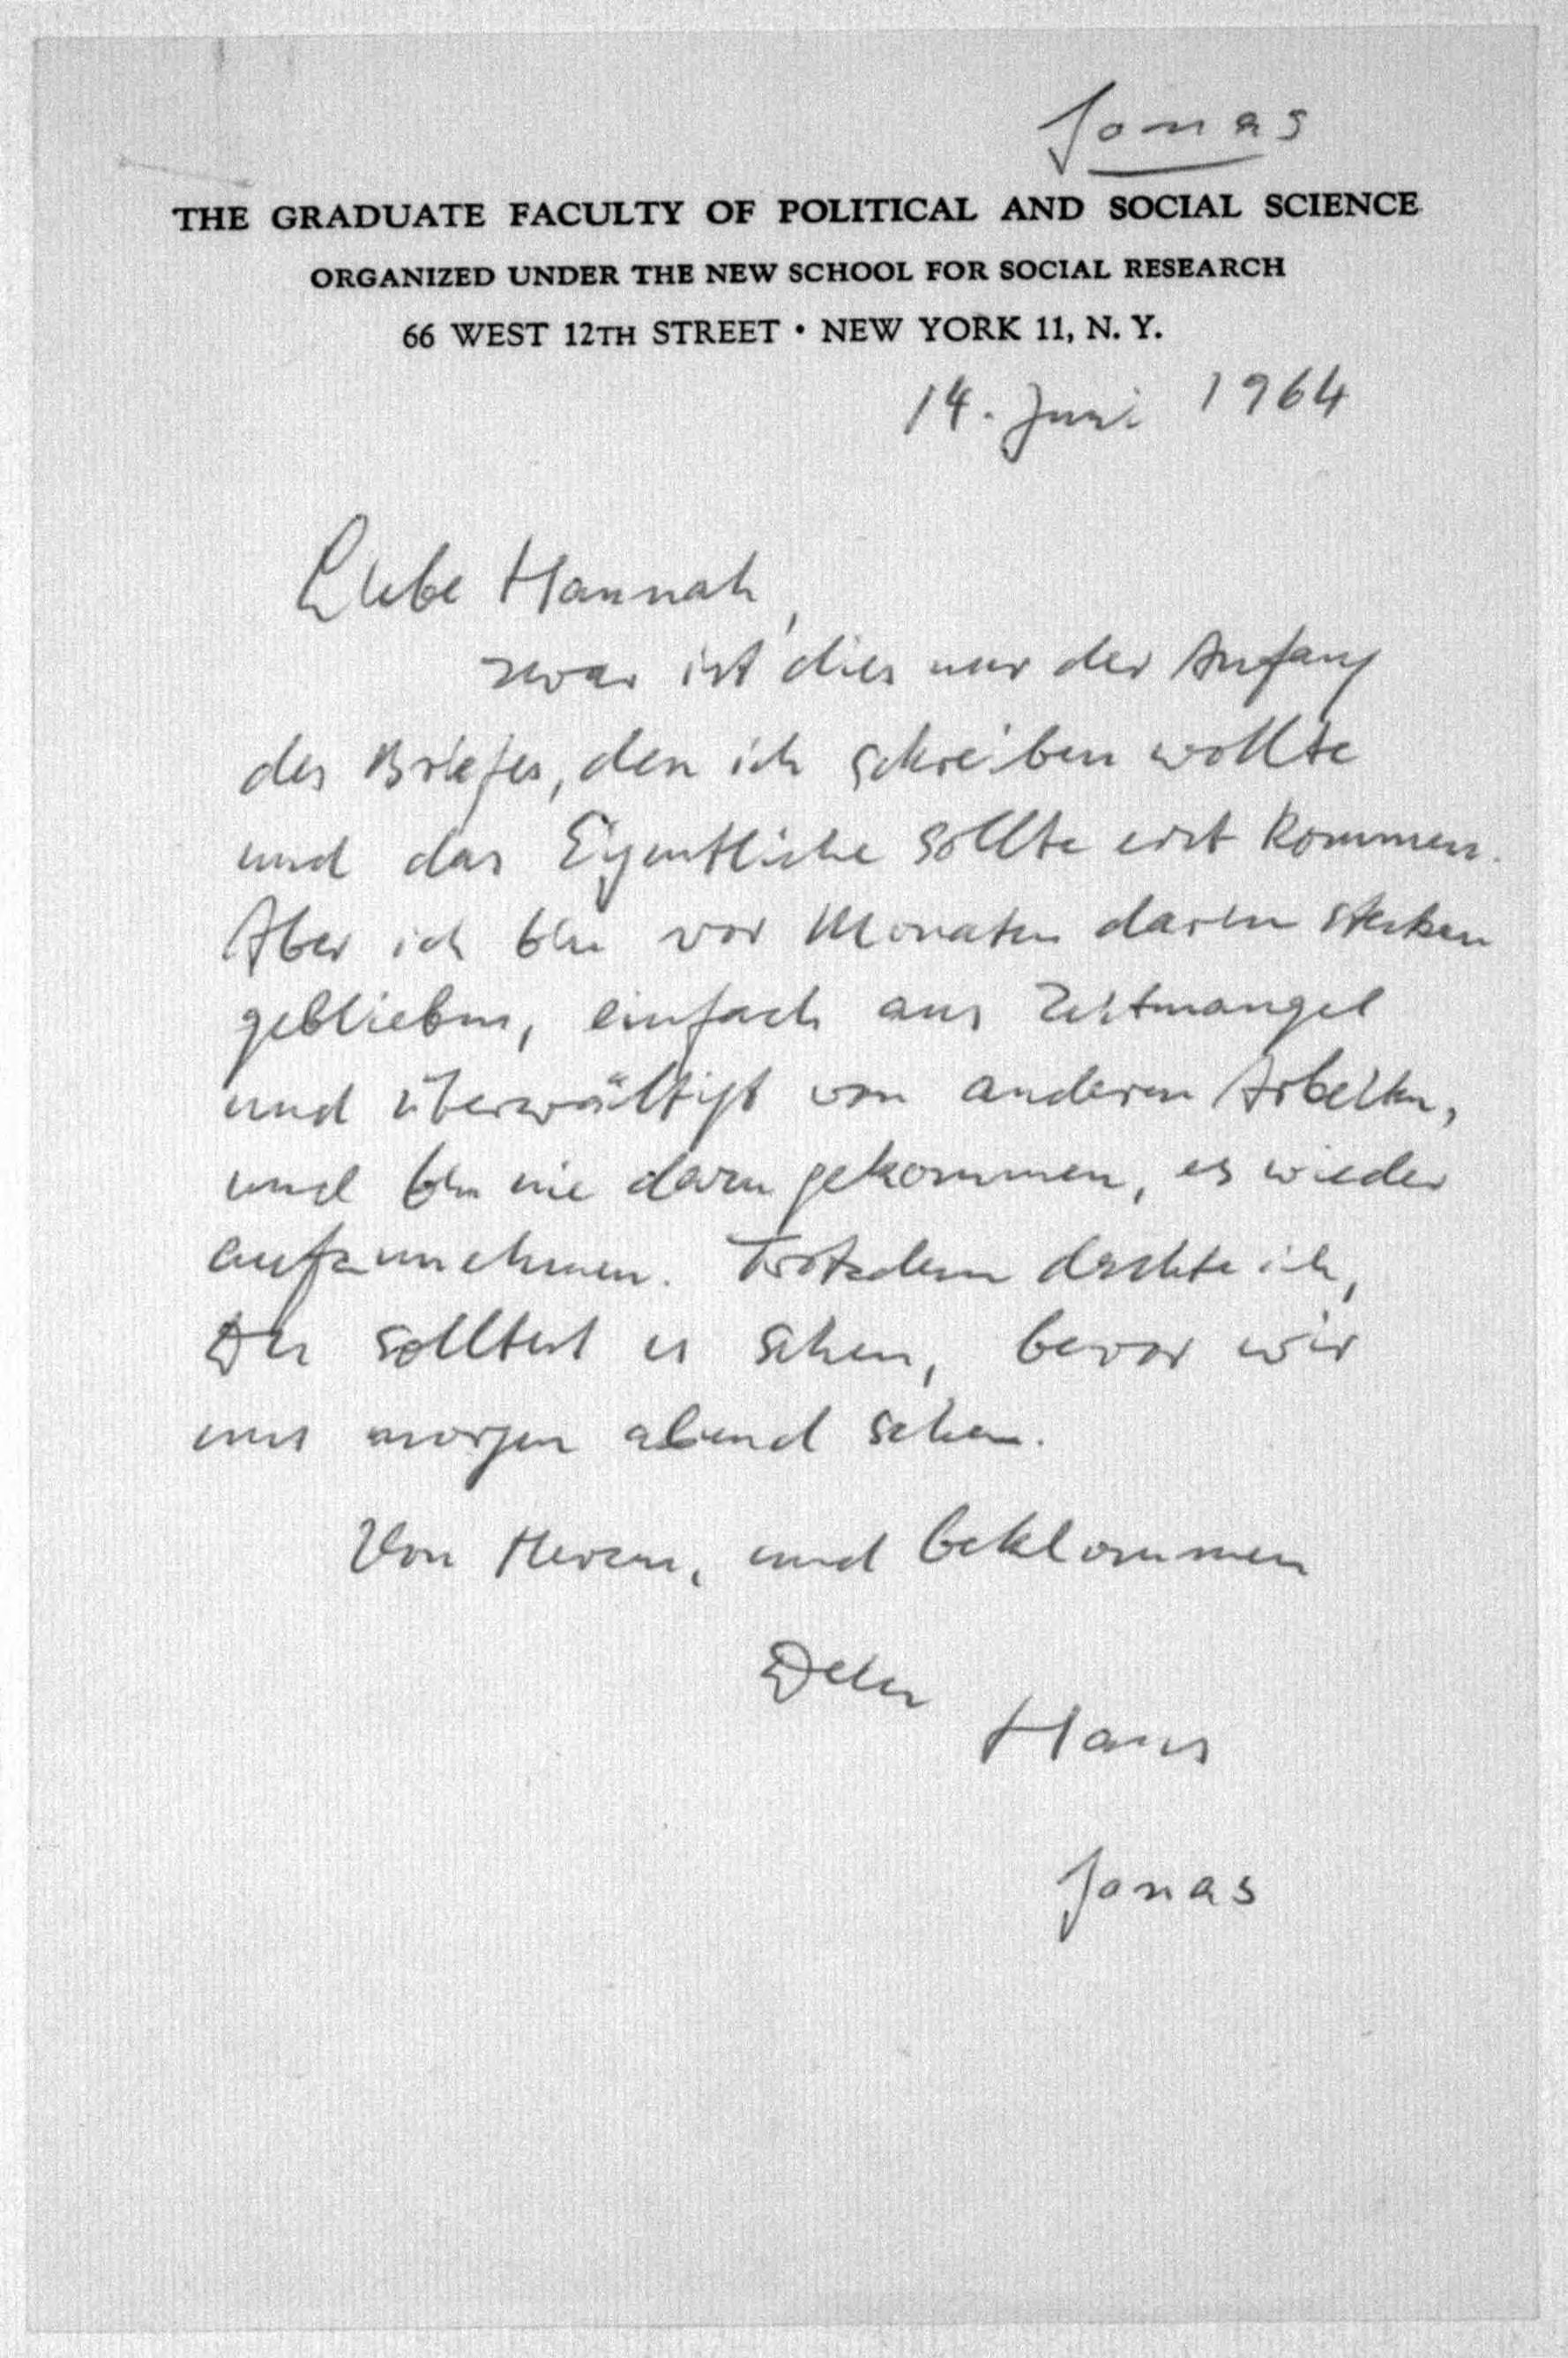 Jonas
THE GRADUATE FACULTY OF POLITICAL AND SOCIAL SCIENCE
ORGANIZED UNDER THE NEW SCHOOL FOR SOCIAL RESEARCH
66 WEST 12TH STREET • NEW YORK 11, N. Y.
14. Juni 1964
Liebe Hannah,
zwar ist dies nur der Anfang
des Briefes, den ich schreiben wollte
und das Eigentliche sollte erst kommen.
Aber ich bin vor Monaten darin stecken
geblieben, einfach aus Zeitmangel
und überwältigt von anderen Arbeiten,
und bin nie dazu gekommen, es wieder
aufzunehmen. Trotzdem dachte ich,
Du solltest es sehen, bevor wir
uns morgen abend sehen.
Von Herzen, und beklommen
Dein
Hans
Jonas